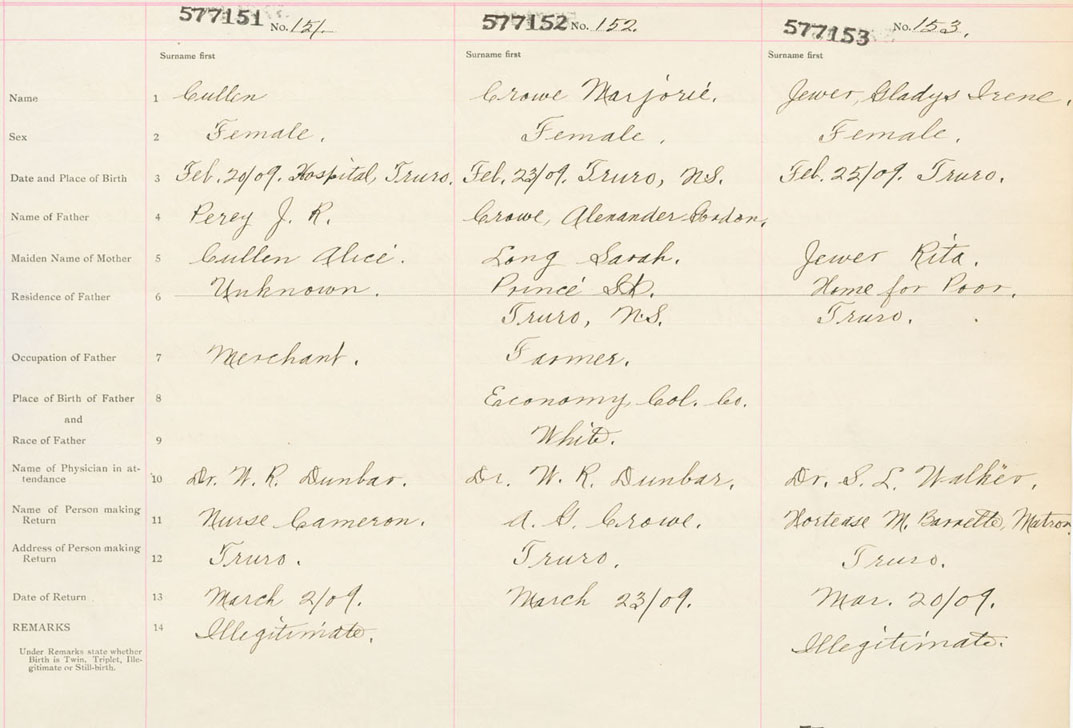 577151 No. 151. 577152 No. 152. 577153 No. 153.
Surname first Surname first Surname first
Name 1 Cullen Crowe Marjorie. Jewer, Gladys Irene.
Sex 2 Female. Female. Female.
Date and Place of Birth 3 Feb. 20/09. Hospital, Truro. Feb. 23/09. Truro, N.S. Feb. 25/09. Truro.
Name of Father 4 Percy J. R. Crowe, Alexander Gordon.
Maiden Name of Mother 5 Cullen Alice. Long Sarah. Jewer Rita.
Residence of Father 6 Unknown. Prince St. Home for Poor.
Truro, N.S. Truro.
Occupation of Father 7 Merchant. Farmer.
Place of Birth of Father 8 Economy Col. Co.
and
Race of Father 9 White.
Name of Physician in at-
tendance 10 Dr. W. R. Dunbar. Dr. W. R. Dunbar. Dr. S. L. Walker.
Name of Person making
Return 11 Nurse Cameron. A. G. Crowe. Hortense M. Barrette, Matron
Address of Person making
Return 12 Truro. Truro. Truro.
Date of Return 13 March 2/09. March 23/09. Mar. 20/09.
REMARKS 14 Illegitimate. Illegitimate.
Under Remarks state whether
Birth is Twin, Triplet, Ille-
gitimate or Still-birth.